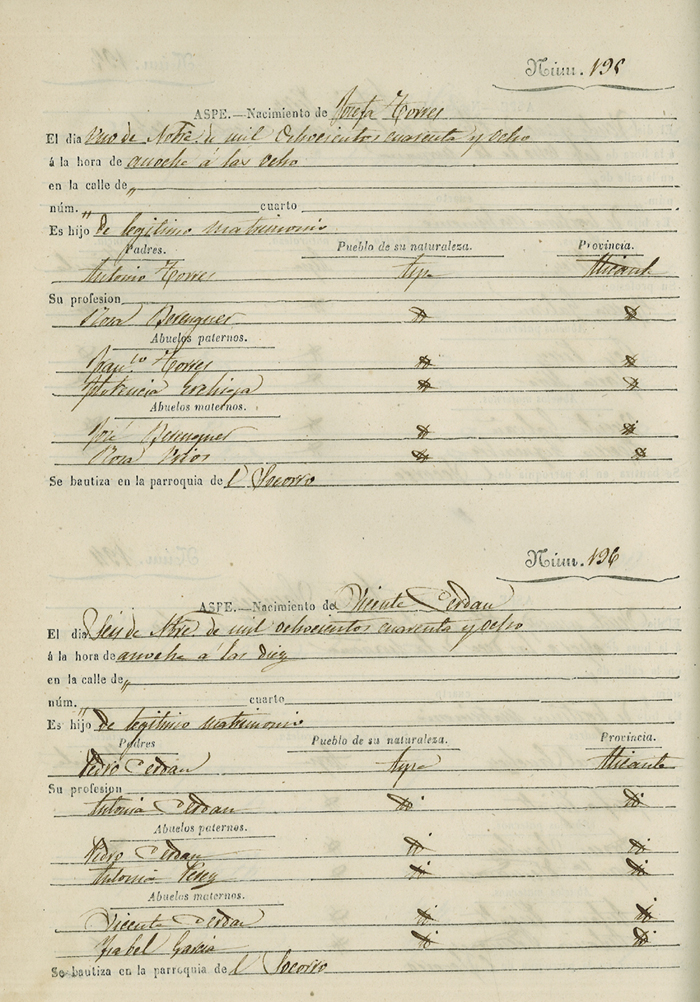 Núm. 195
ASPE.—Nacimiento de Josefa Torres
El dia uno de Nobre. de mil ochocientos cuarenta y ocho
á la hora de anoche á las ocho
en la calle de "
núm. " cuarto
Es hijo de legitimo matrimonio
Padres. Pueblo de su naturaleza. Provincia.
Antonio Torres Aspe Alicante
Su profesion
Rosa Berenguer
Abuelos paternos.
Franco. Torres
Abuelos maternos.
José Berenguer
Rosa
Se bautiza en la parroquia de l Socorro
Núm. 196
ASPE.—Nacimiento de Vicente Cerdan
El dia Seis de Nbre. de mil ochocientos cuarenta y ocho
á la hora de anoche á las diez
en la calle de "
núm. " cuarto
Es hijo de legitimo matrimonio
Padres Pueblo de su naturaleza. Provincia.
Pedro Cerdan Aspe Alicante
Su profesion
Antonia Cerdan
Abuelos paternos.
Pedro Cerdan
Antonia Perez
Abuelos maternos.
Vicente Cerdan
Ysabel Garcia
Se bautiza en la parroquia de l Socorro